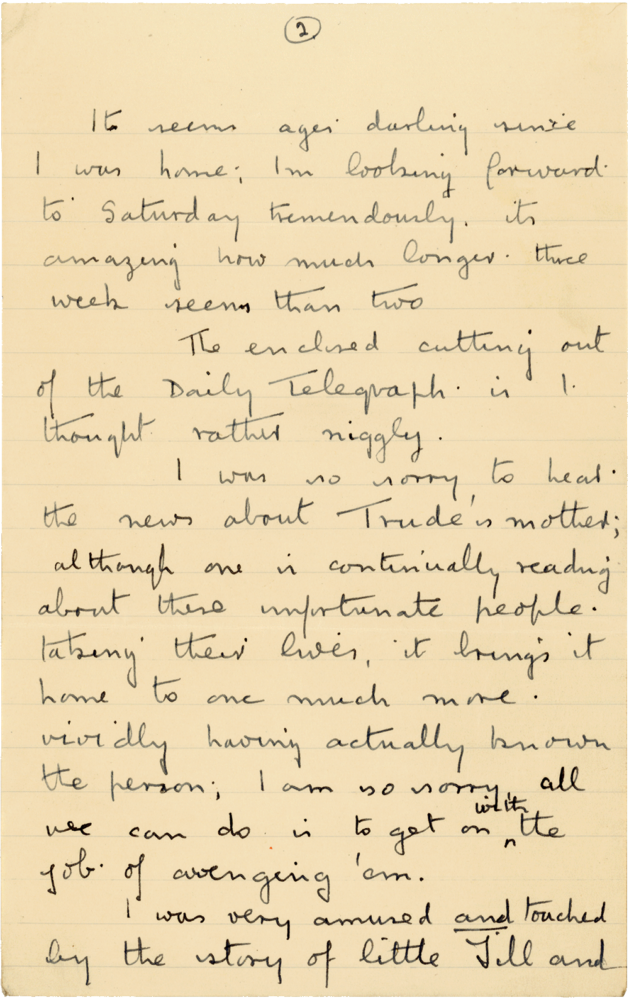 2
It seems ages darling since
I was home; Im looking forward
to Saturday tremendously. its
amazing how much longer three
week seems than two
The enclosed cutting out
of the Daily Telegraph is I
thought rather niggly.
I was so sorry to hear
the news about Trude's mother;
although one is continually reading
about these unfortunate people
taking their lives, it brings it
home to one much more
vividly having actually known
the person; I am so sorry, all
with
we can do is to get on the
job of avenging 'em.
I was very amused and touched
by the story of little Jill and